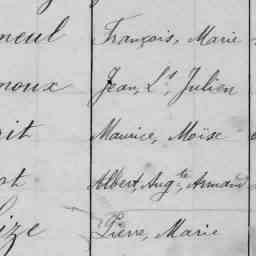 neul François, Marie
noux Jean, Ls, Julien
rit Maurice, Moïse
ot Albert, Augte, Armand
ize Pierre, Marie